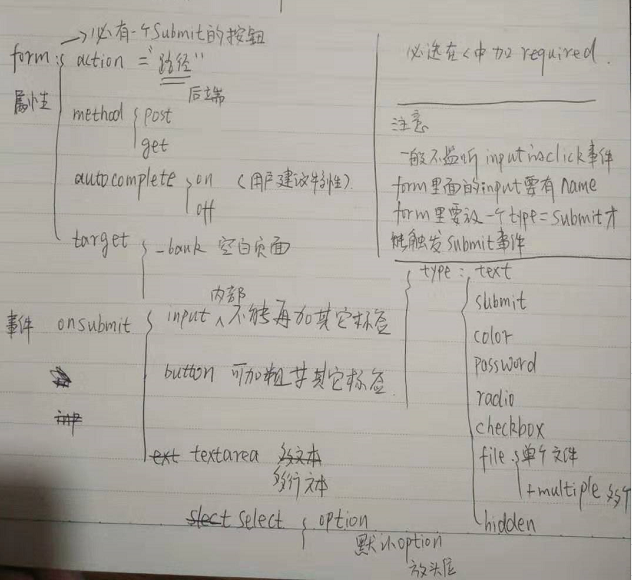 必有一个Submit的按钮
form: action = "路径"
后端
属性
method post
get
autocomplete on (用户建议特性)
off
target _bank 空白页面
事件 onsubmit input 内部不能再加其它标签
button 可加粗 其它标签
textarea
多行文本
select option
默认option
放头层
必选在<中加 required.
注意
一般不监听 input的click事件
form里面的input要有 name
form里要放一个type=submit才
能触发submit事件
type: text
submit
color
password
radio
checkbox
file 单个文件
+multiple 多个
hidden